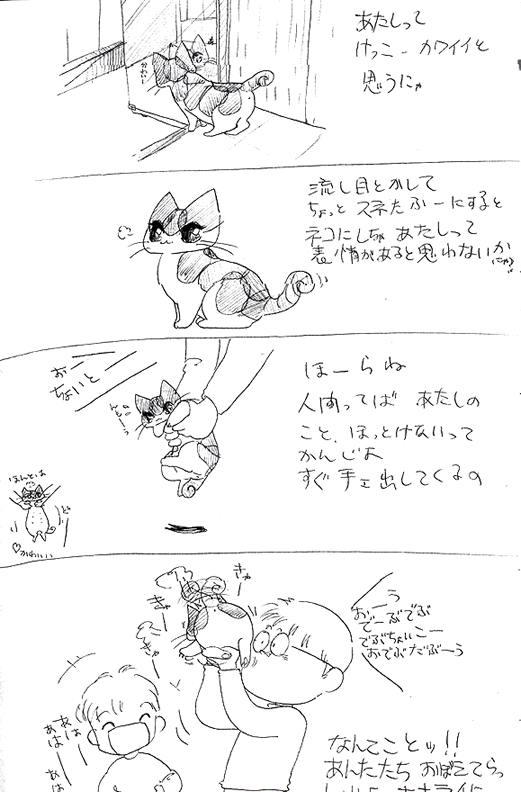 あたしって
けっこーカワイイと
思うにゃ
かわいい
流し目とかして
ちょっとスネたふーにすると
ネコにしちゃあたしって
表情があると思わないか
にゃ?
おー
ちょいと
ほーらね
人間ってば あたしの
こと、ほっとけないって
かんじよ
すぐ手を出してくるの
ほんとは
ど
♡かわいい
おーう
でーぶでぶ
でぶちょいこー
おでぶだぶーう
きゃー
きゃー
あはー
あはー
あはー
なんてことッ!!
あんたたち おぼえてらっ